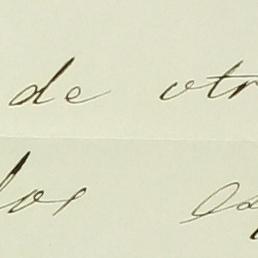 de otr
los